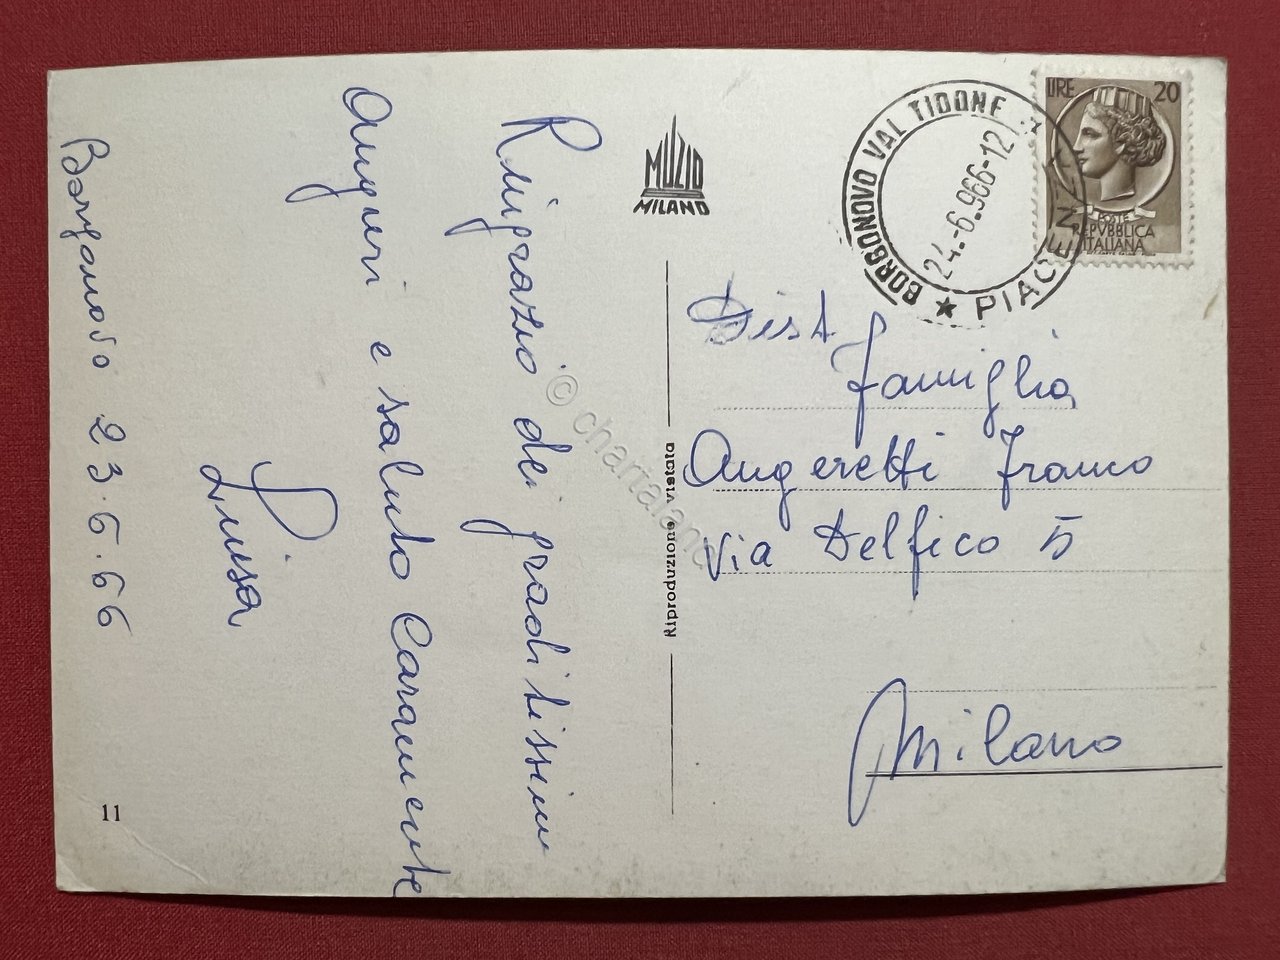 Ringrazio dei graditissimi
Auguri e saluto Caramente
Luisa
Borgonovo 23.6.66
11
MUZIO
MILANO
Riproduzione vietata
BORGONOVO VAL TIDONE
24.-6.966-12
★ PIACENZA
LIRE 20
POSTE
REPVBBLICA
ITALIANA
Dist
famiglia
Angeretti Franco
Via Delfico 5
Milano
© chartaland